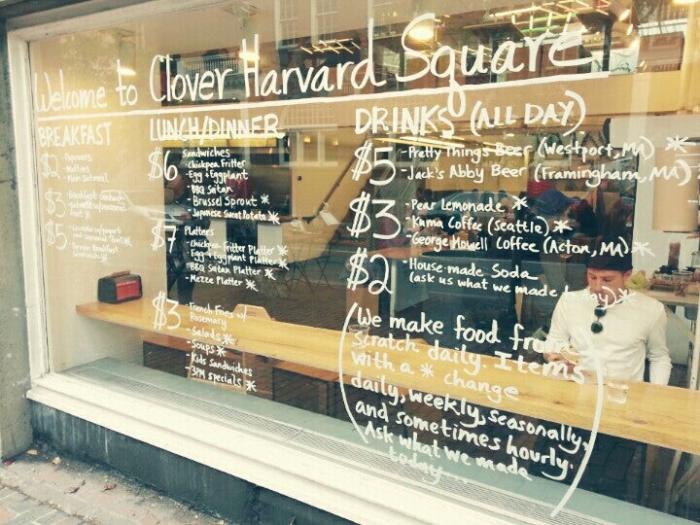 Welcome to Clover Harvard Square
BREAKFAST
$2 - Popovers
- Muffins
$3 - Breakfast Sandwich
$5
LUNCH/DINNER
$6 Sandwiches
- Chickpea Fritter
- Egg + Eggplant
- BBQ Seitan
- Brussel Sprout *
- Japanese Sweet Potato *
$7 Platters
- Chickpea Fritter Platter *
- Egg + Eggplant Platter *
- BBQ Seitan Platter *
- Mezze Platter *
$3 - French Fries w/
Rosemary
- Salads *
- Soups *
- Kids Sandwiches
- 3PM specials *
DRINKS (ALL DAY)
$5 - Pretty Things Beer (Westport, MA) *
- Jack's Abby Beer (Framingham, MA) *
$3 - Pear Lemonade *
- Kuma Coffee (Seattle) *
- George Howell Coffee (Acton, MA) *
$2 - House-made Soda
(ask us what we made today) *
(We make food from
Scratch daily. Items
with a * change
daily, weekly, seasonally,
and sometimes hourly.
Ask what we made
today...)